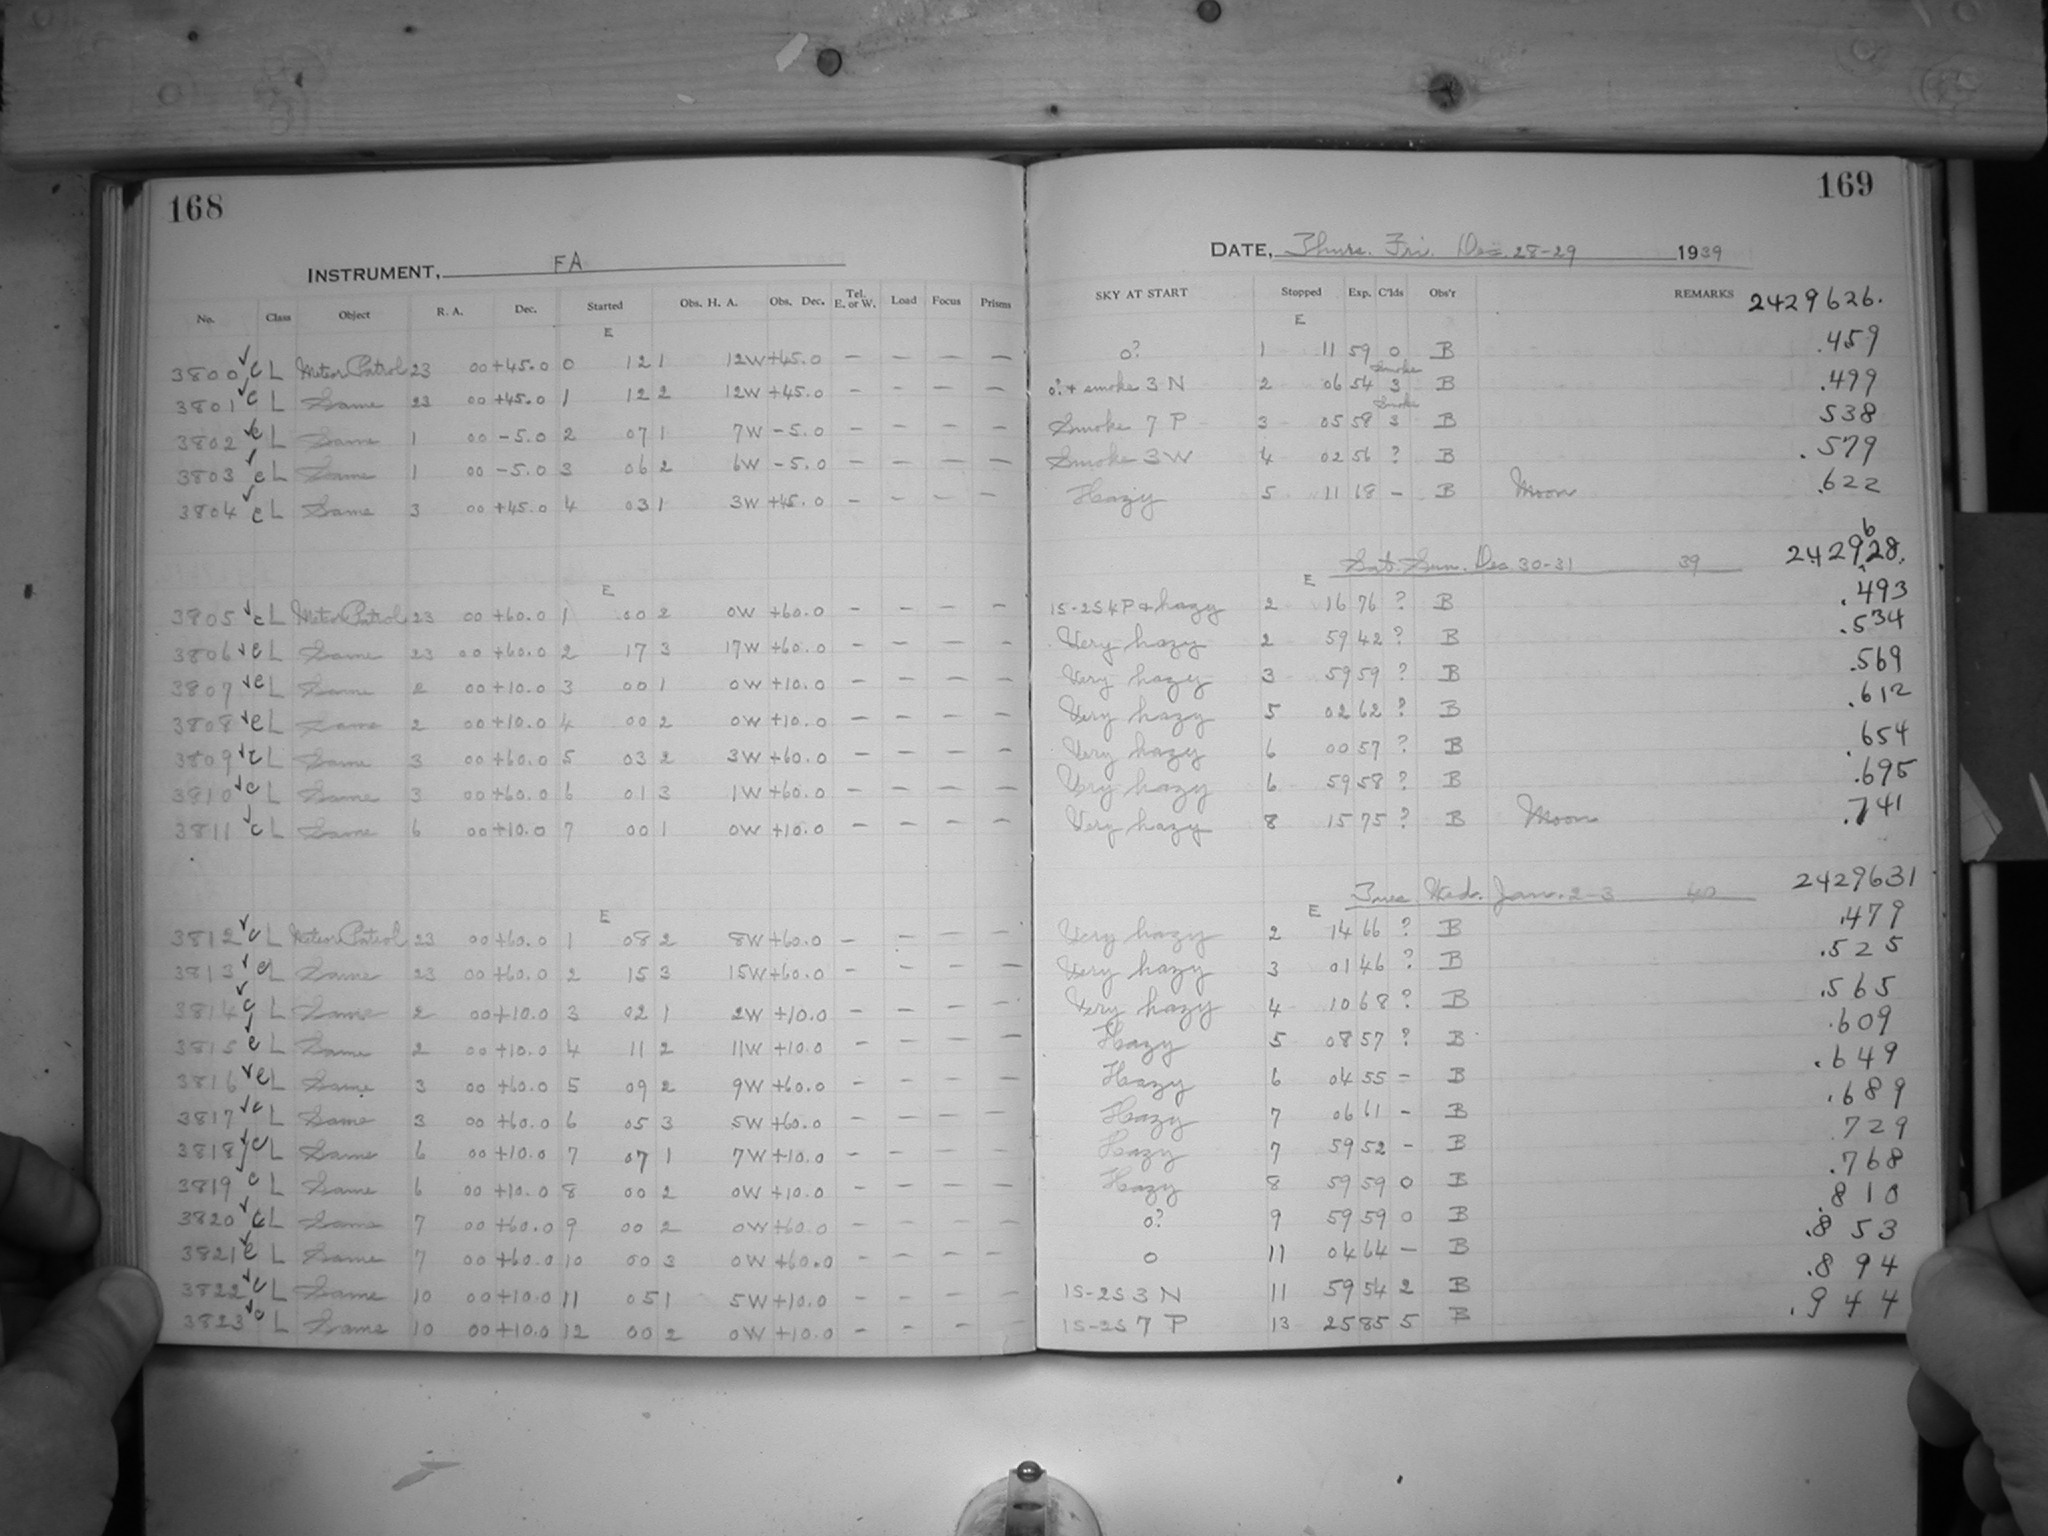 168
INSTRUMENT, FA
No. Class Object R. A. Dec. Started Obs. H. A. Obs. Dec. Tel. E. or W. Load Focus Prisms
E
3800 ✓ c L Meteor Patrol 23 00 +45.0 0 12 1 12W +45.0 — — — —
3801 ✓ c L Same 23 00 +45.0 1 12 2 12W +45.0 — — — —
3802 ✓ c L Same 1 00 -5.0 2 07 1 7W -5.0 — — — —
3803 ✓ c L Same 1 00 -5.0 3 06 2 6W -5.0 — — — —
3804 ✓ c L Same 3 00 +45.0 4 03 1 3W +45.0 — — — —
E
3805 ✓ c L Meteor Patrol 23 00 +60.0 1 00 2 0W +60.0 — — — —
3806 ✓ c L Same 23 00 +60.0 2 17 3 17W +60.0 — — — —
3807 ✓ c L Same 2 00 +10.0 3 00 1 0W +10.0 — — — —
3808 ✓ c L Same 2 00 +10.0 4 00 2 0W +10.0 — — — —
3809 ✓ c L Same 3 00 +60.0 5 03 2 3W +60.0 — — — —
3810 ✓ c L Same 3 00 +60.0 6 01 3 1W +60.0 — — — —
3811 ✓ c L Same 6 00 +10.0 7 00 1 0W +10.0 — — — —
E
3812 ✓ c L Meteor Patrol 23 00 +60.0 1 08 2 8W +60.0 — — — —
3813 ✓ c L Same 23 00 +60.0 2 15 3 15W +60.0 — — — —
3814 ✓ c L Same 2 00 +10.0 3 02 1 2W +10.0 — — — —
3815 ✓ c L Same 2 00 +10.0 4 11 2 11W +10.0 — — — —
3816 ✓ c L Same 3 00 +60.0 5 09 2 9W +60.0 — — — —
3817 ✓ c L Same 3 00 +60.0 6 05 3 5W +60.0 — — — —
3818 ✓ c L Same 6 00 +10.0 7 07 1 7W +10.0 — — — —
3819 c L Same 6 00 +10.0 8 00 2 0W +10.0 — — — —
3820 ✓ c L Same 7 00 +60.0 9 00 2 0W +60.0 — — — —
3821 ✓ c L Same 7 00 +60.0 10 00 3 0W +60.0 — — — —
3822 ✓ c L Same 10 00 +10.0 11 05 1 5W +10.0 — — — —
3823 ✓ c L Same 10 00 +10.0 12 00 2 0W +10.0 — — — —
169
DATE, Thurs. Fri. Dec. 28-29 1939
SKY AT START Stopped Exp. C'lds Obs'r REMARKS 2429626.
E
0? 1 11 59 0 B .459
0? + smoke 3 N 2 06 54 smoke 3 B .499
Smoke 7 P 3 05 58 smoke 3 B 538
Smoke 3 W 4 02 56 ? B .579
Hazy 5 11 68 — B Moon .622
E Sat. Sun. Dec 30-31 39 2429628.
1S-2S 4 P + hazy 2 16 76 ? B .493
Very hazy 2 59 42 ? B .534
Very hazy 3 59 59 ? B .569
Very hazy 5 02 62 ? B .612
Very hazy 6 00 57 ? B .654
Very hazy 6 59 58 ? B .695
Very hazy 8 15 75 ? B Moon .741
E Tues Wed. Jan. 2-3 40 2429631
Very hazy 2 14 66 ? B .479
Very hazy 3 01 46 ? B .525
Very hazy 4 10 68 ? B .565
Hazy 5 08 57 ? B .609
Hazy 6 04 55 — B .649
Hazy 7 06 61 — B .689
Hazy 7 59 52 — B 729
Hazy 8 59 59 0 B .768
0? 9 59 59 0 B .810
0 11 04 64 — B .853
1S-2S 3 N 11 59 54 2 B .894
1S-2S 7 P 13 25 85 5 B .944